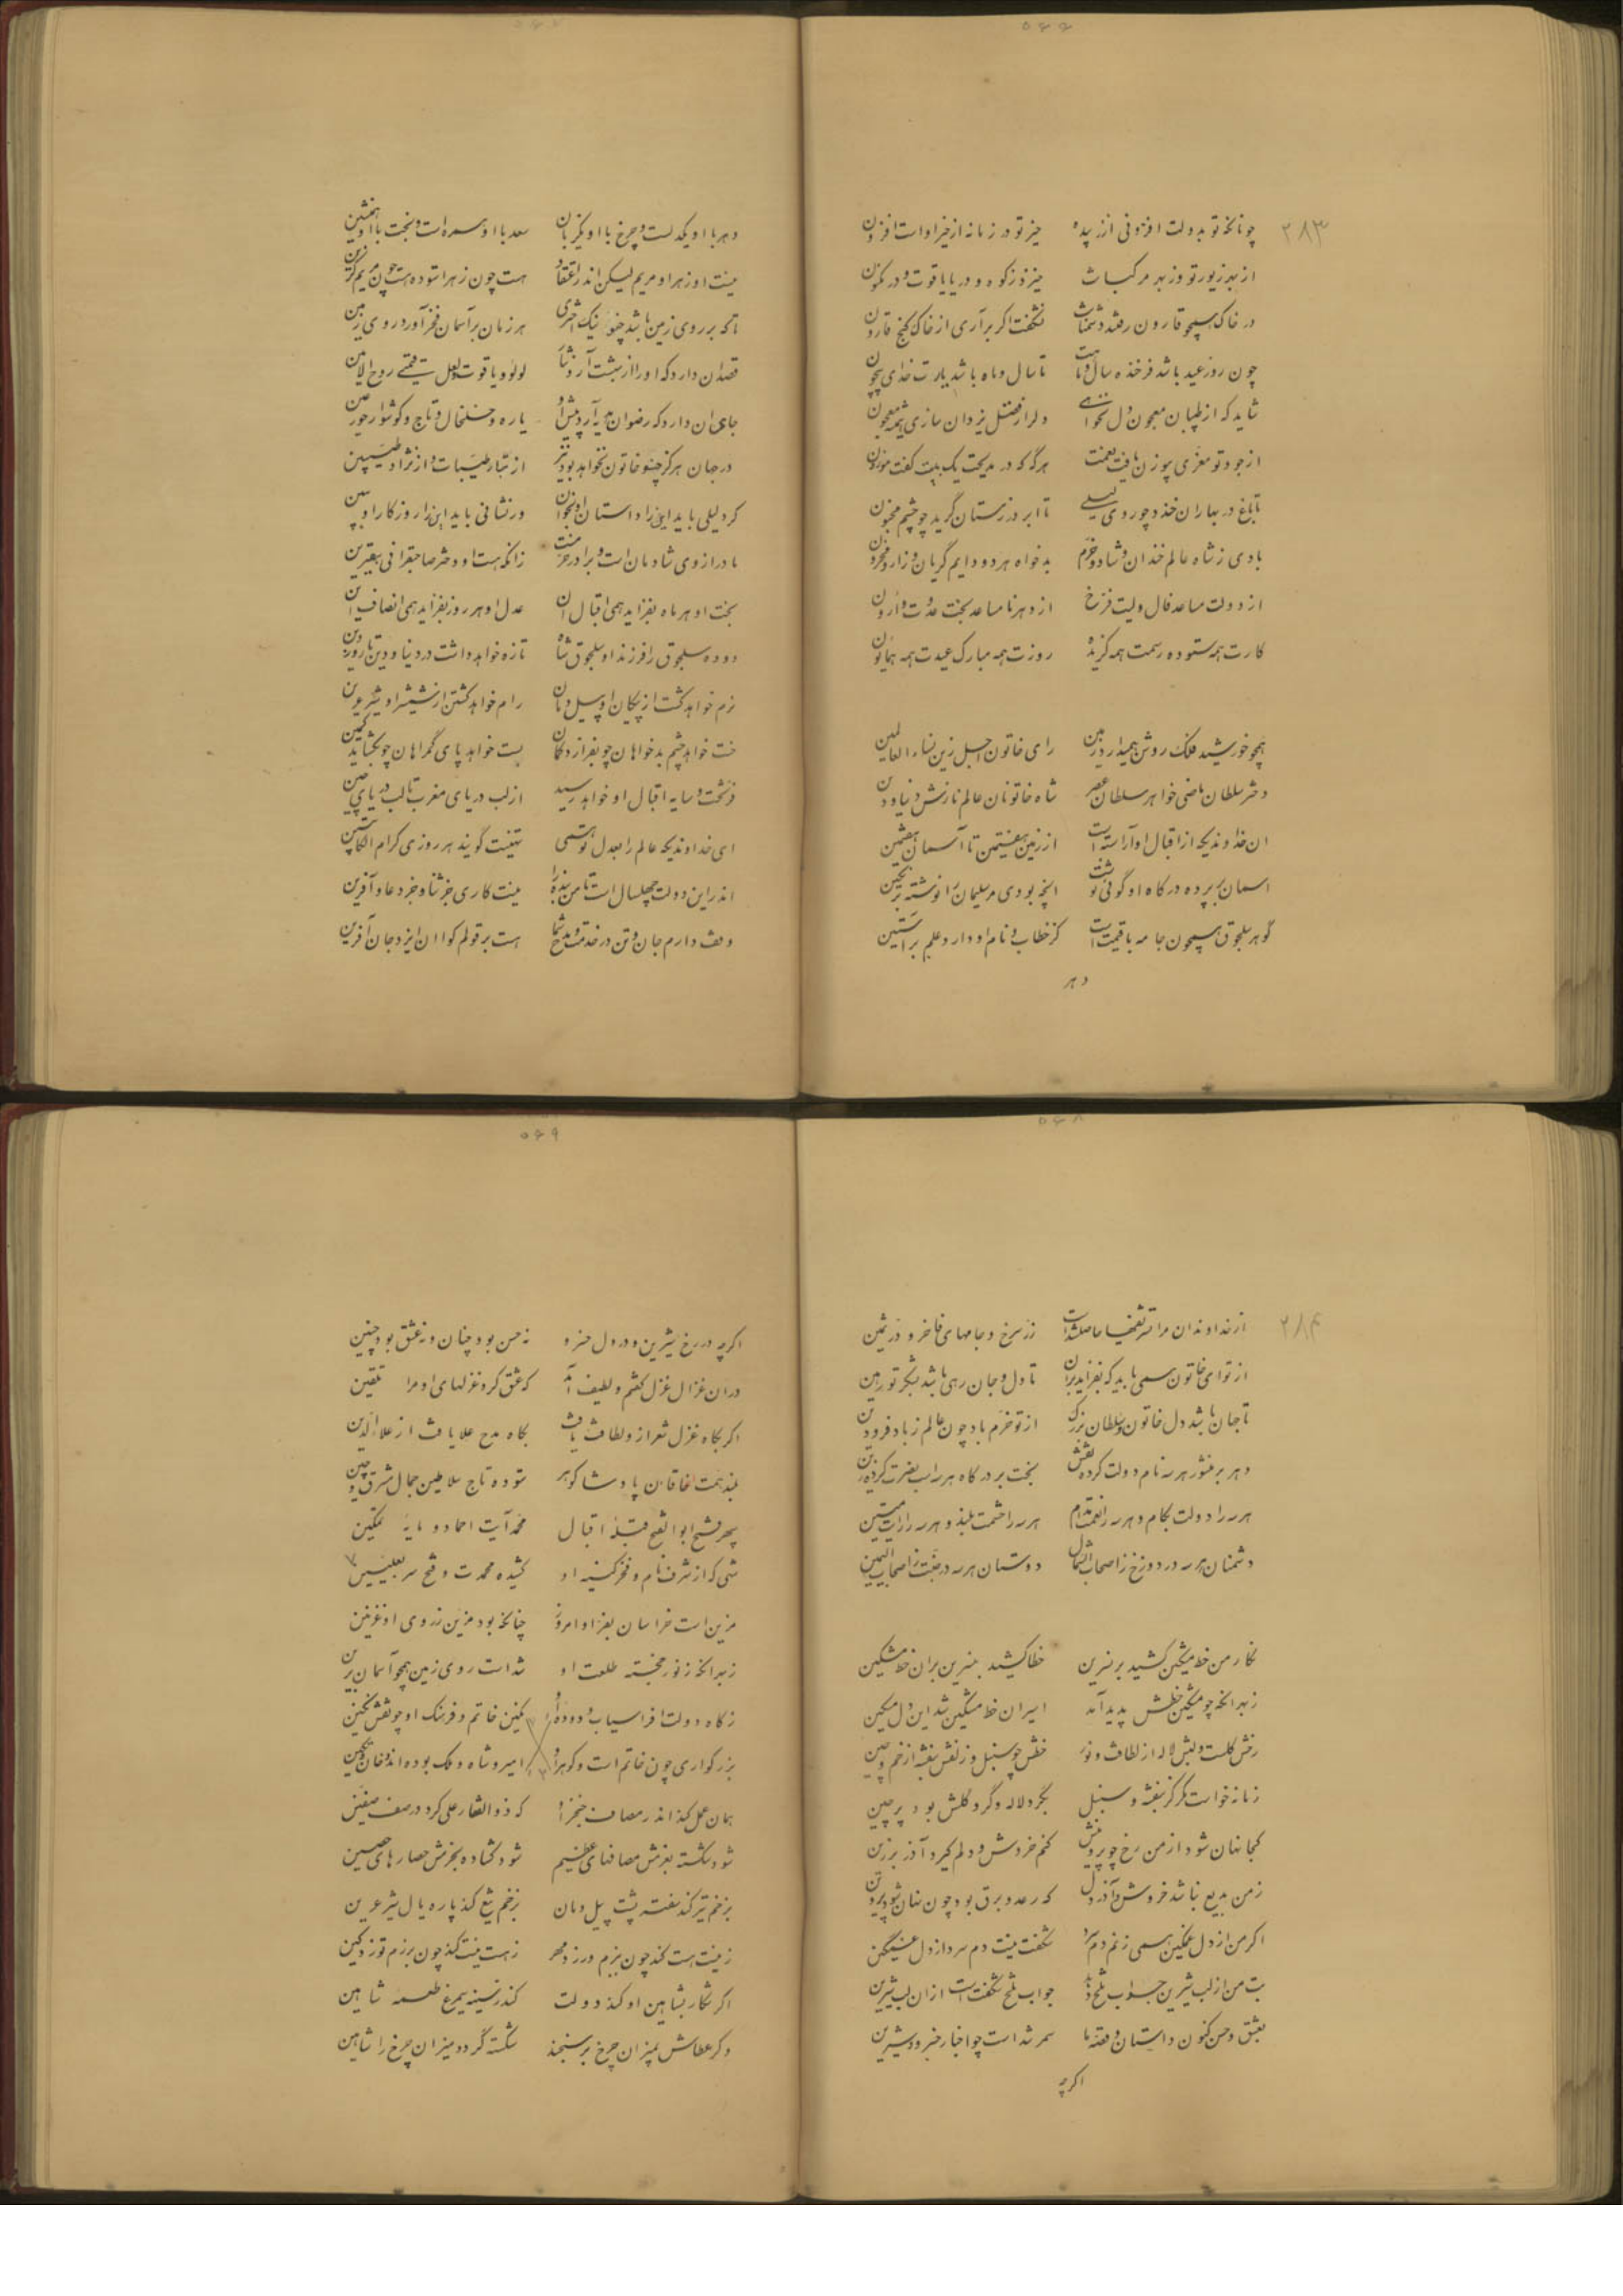 ۵۶۶
۲۸۳
چونانکه تو بدولت افزونی از زبیده خیر تو در زمانه از خیر او است افزون
از بهر زیور تو وز بهر مرکبانت خیزد ز کوه و دریا یاقوت و در مکنون
در خاک همچو قارون رفتند دشمنانت نشگفت اگر برآری از خاک گنج قارون
چون روز عید باشد فرخنده سال و ماهت تا سال و ماه باشد یارت خدای بیچون
شاید که از طبیبان معجون دل نخواهی دلرا ز فضل یزدان سازی همیشه معجون
از جود تو معزی بی وزن یافت نعمت هرگه که در مدیحت یک بیت گفت موزون
تا باغ در بهاران خندد چو روی لیلی تا ابر در زمستان گرید چو چشم مجنون
بادی ز شاه عالم خندان و شاد و خرم بدخواه هر دو دایم گریان و زار و محزون
از دولت مساعد فال ولیت فرخ از دهر نامساعد بخت عدوت وارون
کارت همه ستوده رسمت همه گزیده روزت همه مبارک عیدت همه همایون
همچو خورشید فلک روشن همیدارد زمین رای خاتون اجل زین نساء العالمین
دختر سلطان ماضی خواهر سلطان عصر شاه خاتونان عالم نازش دنیا و دین
ان خداوندیکه از اقبال او آراسته است از زمین هفتمین تا آسمان هفتمین
اسمان بر پرده درگاه او گوئی نوشت انچه بودی مر سلیمان را نوشته بر نگین
گوهر سلجوق همچون جامه با قیمت است کز خطاب و نام او دارد علم بر استین
دهر
۵۶۷
دهر با او یکدلست و چرخ با او یکزبان سعد با او همره است و بخت با او همنشین
نیست او زهرا و مریم لیکن اندر اعتقاد هست چون زهرا ستوده هست چون مریم گزین
تا که بر روی زمین باشد چنو نیک اختری هر زمان بر آسمان فخر آورد روی زمین
قصد ان دارد که او را از بهشت آرد نثار لولو و یاقوت و لعل قیمتی روح الامین
جای ان دارد که رضوان هدیه آرد پیش او یاره و خلخال و تاج و گوشوار حور عین
در جهان هرگز چنو خاتون نخواهد بود نیز از تبار طیبات و از نژاد طیبین
گر دلیلی باید این را داستان او بخوان ور نشانی باید این را روزگار او ببین
مادر از وی شادمان است و برادر محتشم زانکه هست او دختر صاحبقرانی بیقرین
بخت او هر ماه بفزاید همی اقبال ان عدل او هر روز بفزاید همی انصاف این
دوده سلجوق را فرزند او سلجوق شاه تازه خواهد داشت در دنیا و دین تا روز دین
نرم خواهد گشت از پیکان او پیل دمان رام خواهد گشتن از شمشیر او شیر عرین
خست خواهد چشم بدخواهان چو بفرازد کمان بست خواهد پای گمراهان چو بگشاید کمین
فر بخت و سایه اقبال او خواهد رسید از لب دریای مغرب تا لب دریای چین
ای خداوندیکه عالم را بعدل تو همی تهنیت گویند هر روزی کرام الکاتبین
اندر این دولت چهلسال است تا من بنده را نیست کاری جز ثنا و جز دعا و آفرین
وقف دارم جان و تن در خدمت و مدح شما هست بر قولم گوا ان ایزد جان آفرین
۵۶۸
۲۸۴
از خداوندان مرا تشریفها حاصلشدست زر سرخ و جامهای فاخر و در ثمین
از تو ای خاتون همی باید که بفزاید بران تا دل و جان رهی باشد بشکر تو رهین
تا جهان باشد دل خاتون و سلطان بزرگ از تو خرم باد چون عالم ز باد فرودین
دهر بر منشور هر سه نام دولت کرده نقش بخت بر درگاه هر سه اسب نصرت کرده زین
هر سه را دولت بکام و هر سه را نعمت مدام هر سه را حشمت بلند و هر سه را رایت متین
دشمنان هر سه در دوزخ ز اصحاب الشمال دوستان هر سه در جنت ز اصحاب الیمین
نگار من خط مشکین کشید بر نسرین خطا کشید بنسرین بران خط مشکین
ز بهر انکه چو مشکین خطش پدید آمد اسیر ان خط مشکین شد این دل مسکین
رخش گلست و لبش لاله از لطافت و نور خطش چو سنبل و زلفش بنفشه از خم و چین
زمانه خواست مگر کز بنفشه و سنبل بگرد لاله و گرد گلش بود پرچین
کجا نهان شود از من رخ چو پروینش کنم خروش و دلم گیرد آذر برزین
ز من بدیع نباشد خروش و آذر دل که رعد و برق بود چون نهان شود پروین
اگر من از دل غمگین همی زنم دم سرد شگفت نیست دم سرد از دل غمگین
بت من از لب شیرین جواب تلخ دهد جواب تلخ شگفت است از ان لب شیرین
بعشق و حسن کنون داستان و قصه ما سمر شداست چو اخبار خسرو و شیرین
اگرچه
۵۶۹
اگرچه در رخ شیرین و در دل خسرو نه حسن بود چنان و نه عشق بود چنین
دران غزال غزل گفتم و لطیف آمد که عشق کرد غزلهای او مرا تلقین
اگر بگاه غزل شعر از و لطافت یافت بگاه مدح علا یافت از علاءالدین
بلند همت خاقان پادشا گوهر ستوده تاج سلاطین جمال مشرق و چین
سپهر فتح ابوالفتح قبله اقبال محمد آیت احماد و مایه تمکین
شهی که از شرف نام و فخر کنیه او کشیده محمدت و فتح سر بعلیین
مزین است خراسان بعز او امروز چنانکه بود مزین ز روی او غزنین
ز بهر انکه ز نور خجسته طلعت او شداست روی زمین همچو آسمان برین
ز گاه دولت افراسیاب و دوده او نگین خاتم و فرهنگ او چو نقش نگین
بزرگواری چون خاتم است و گوهر او امیر و شاه و ملک بوده اند و خان و تگین
همان عمل کند اندر مصاف خنجر او که ذوالفقار علی کرد در صف صفین
شود شکسته بعزمش مصافهای عظیم شود گشاده بحزمش حصارهای حصین
بزخم تیر کند سفته پشت پیل دمان بزخم تیغ کند پاره یال شیر عرین
ز نیست هست کند چون ببزم ورزد مهر ز هست نیست کند چون برزم توزد کین
اگر شکار بشاهین او کند دولت کند ز سینه سیمرغ طعمه شاهین
وگر عطاش بمیزان چرخ برسنجند شکسته گردد میزان چرخ را شاهین